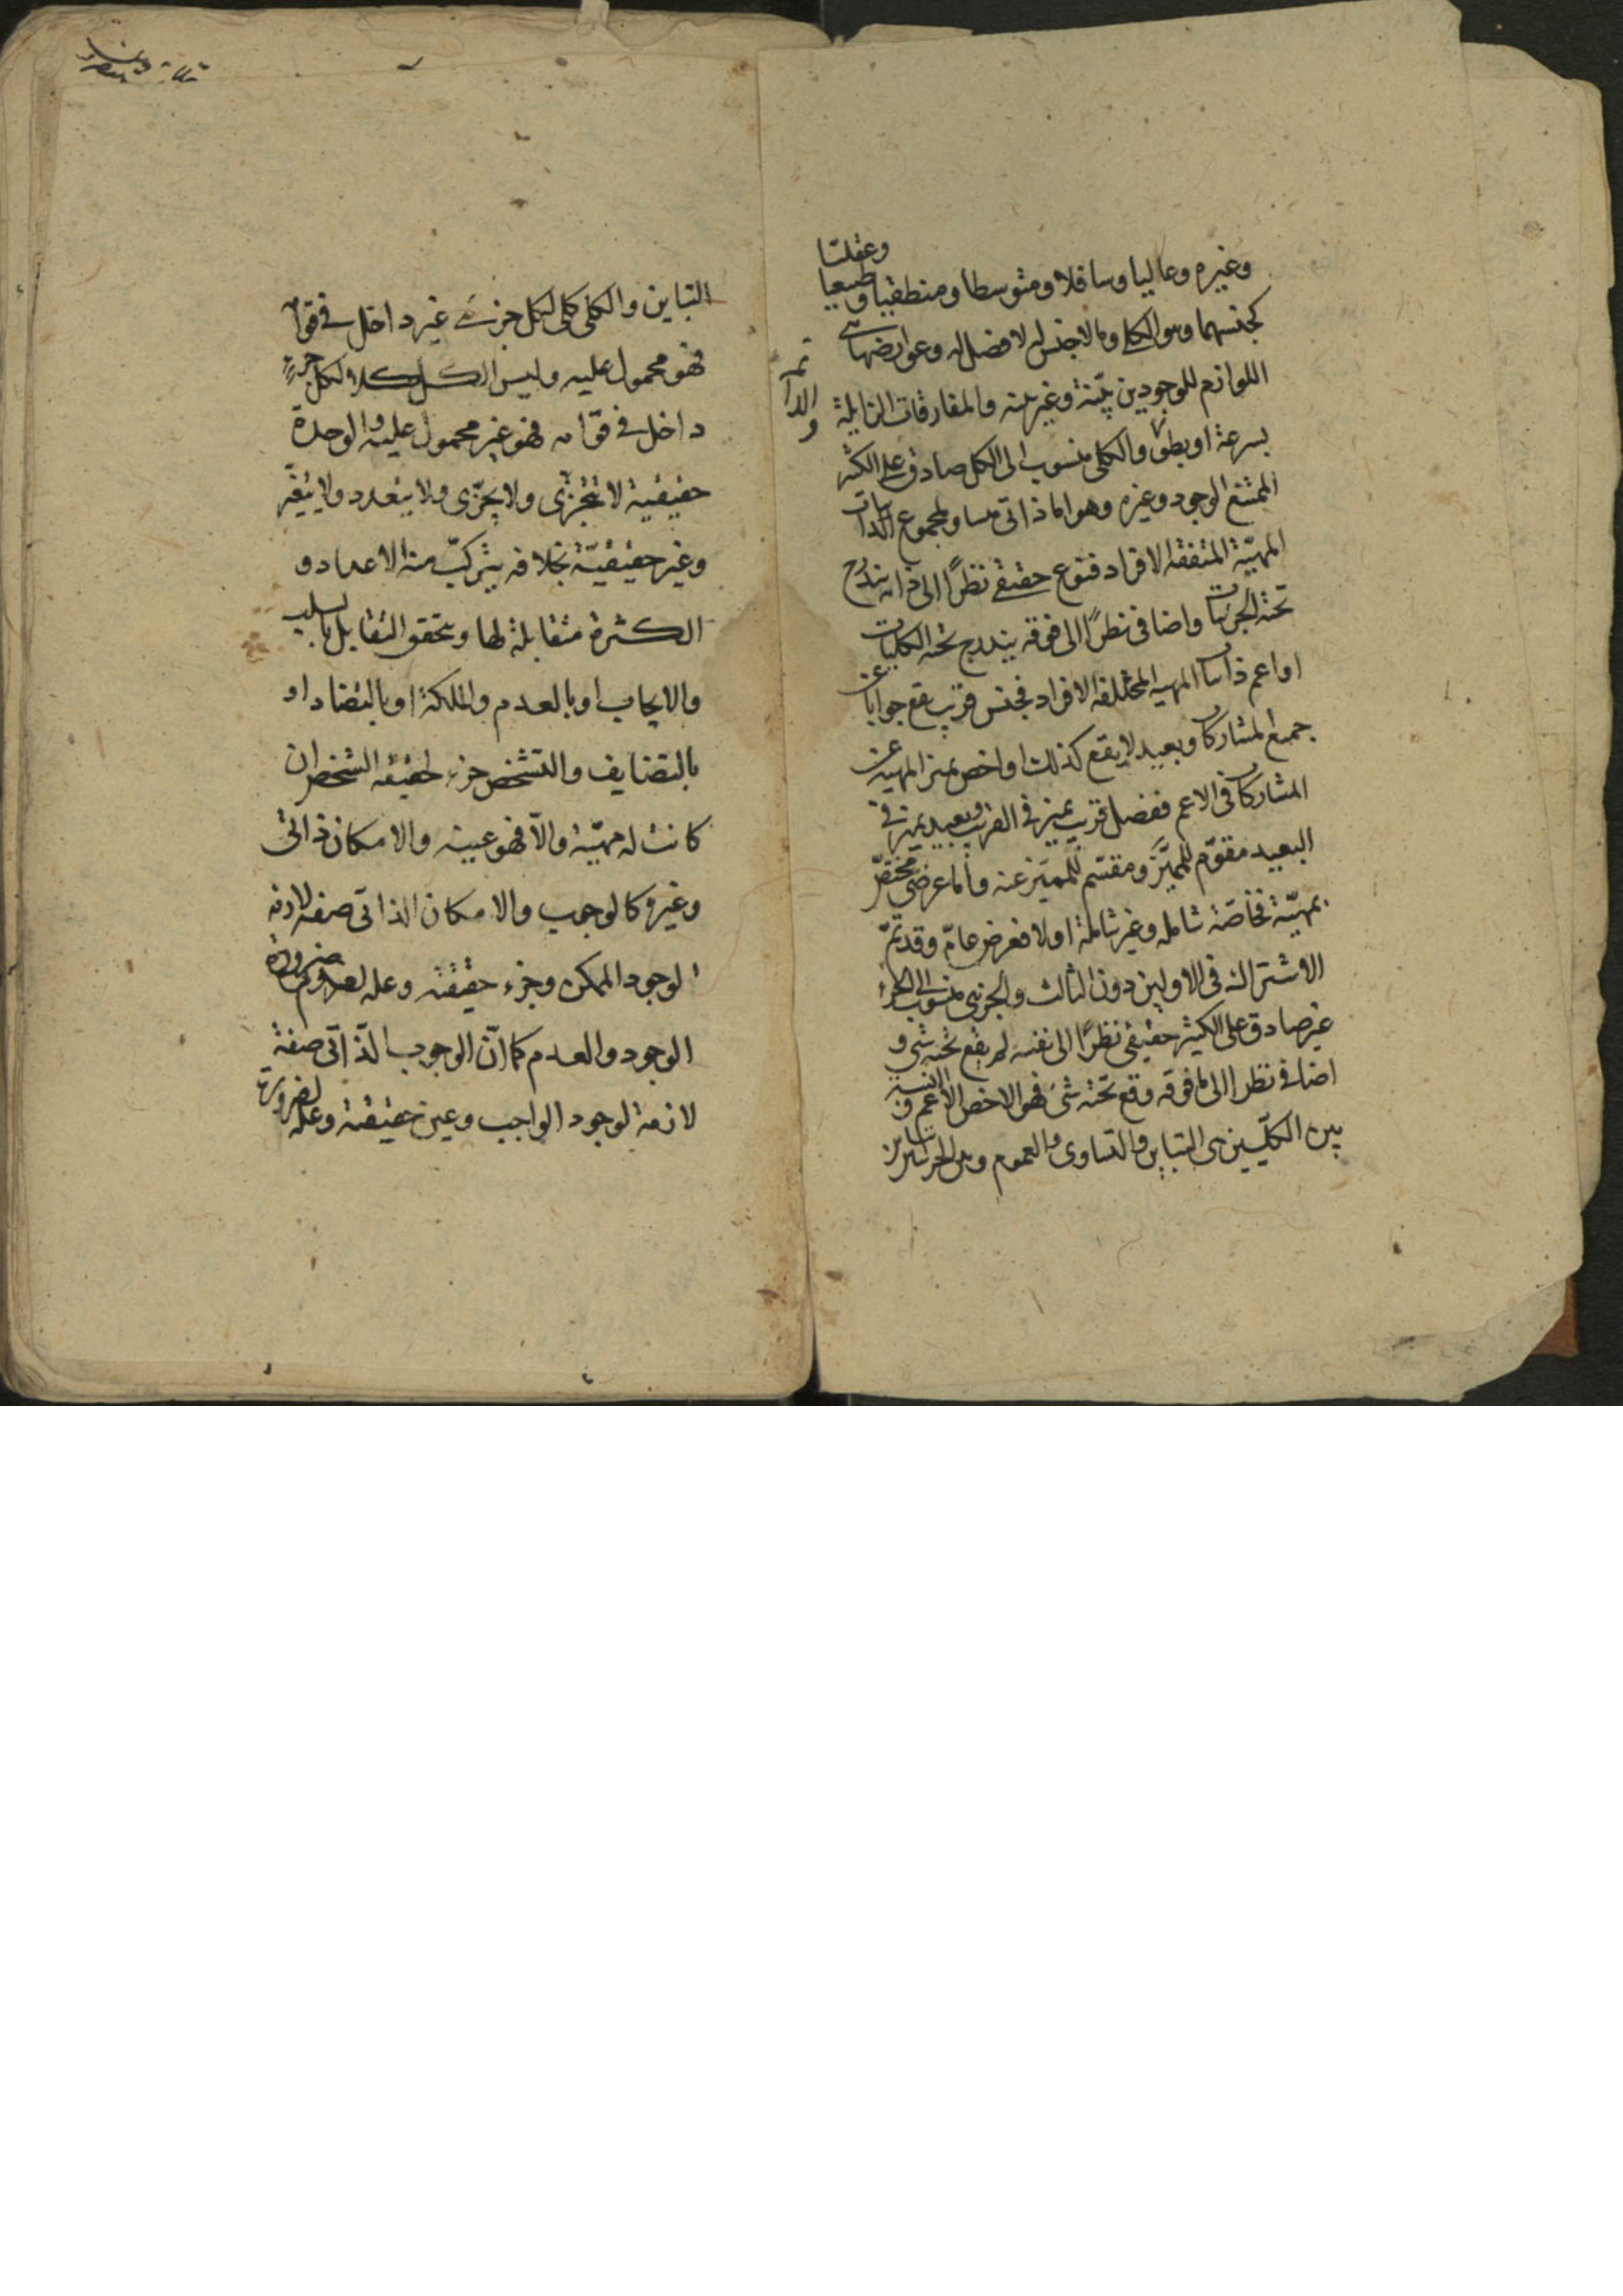 وعقليّا
وغيره وعاليا وسافلا ومتوسطا ومنطقيا وطبيعيا
كجنسهما وهو الكلي وما لا جنس له لا فصل له وعوارضها
اللوازم للوجودين بيّنة وغير بينه والمفارقات الزايلة
بسرعة او بطؤ والكلى منسوب الى الكل صادق على الكثير
الممتنع الوجود وغيره وهو اما ذاتى مساو لمجموع الذاتيات
المهيّة المتفقة الافراد فنوع حقيقى نظرًا الى ذاته يندرج
تحته الجزئيات واضافى نظرًا الى فوقه يندرج تحته الكليات
او اعم ذاتيات المهية المختلفة الافراد فجنس قريب يقع جوابا عن
جميع المشاركات وبعيد لا يقع كذلك او اخص يميز المهية عن
المشاركات فى الاعم ففصل قريب يميز فى القريب وبعيد يميز فى
البعيد مقوّم للمميَّز ومقسّم للمميّز عنه واما عرضى مختصّ
بمهيّة فخاصّة شاملة وغير شاملة او لا فعرض عامّ وقد تمّ
الاشتراك فى الاولين دون الثالث والجزئى منسوب الى الجزء
غير صادق على الكثير حقيقى نظرًا الى نفسه لم يقع تحته شى و
اضافى نظرا الى ما فوقه وقع تحته شئ فهو الاخص الاعم و النسبة
بين الكليّين هى التباين والتساوى والعموم وبين الجزئيين
التباين والكلى كلى لكل جزئى غير داخل فى قوامه
فهو محمول عليه وليس الكل كلا لكل جزء
داخل فى قوّامه فهو غير محمول عليه والوحدة
حقيقية لا تتجزّى ولا يجزّى ولا يتعدد ولا يتغيّر
وغير حقيقيّة بخلافه يتركّب منه الاعداد و
الكثرة متقابلة لها ويتحقق التقابل بالسلب
والايجاب او بالعدم والملكة او بالتضاد او
بالتضايف والتشخص جزء لحقيقة الشخص ان
كانت له مهيّة والاّ فهو عينه والامكان ذاتى
وغيره كالوجوب والامكان الذاتى صفة لازمة
لوجود الممكن وجزء حقيقته وعلة لعدم ضرورة
الوجود والعدم كما انّ الوجوب الذّاتى صفة
لازمة لوجود الواجب وعين حقيقته وعلة لضرورية